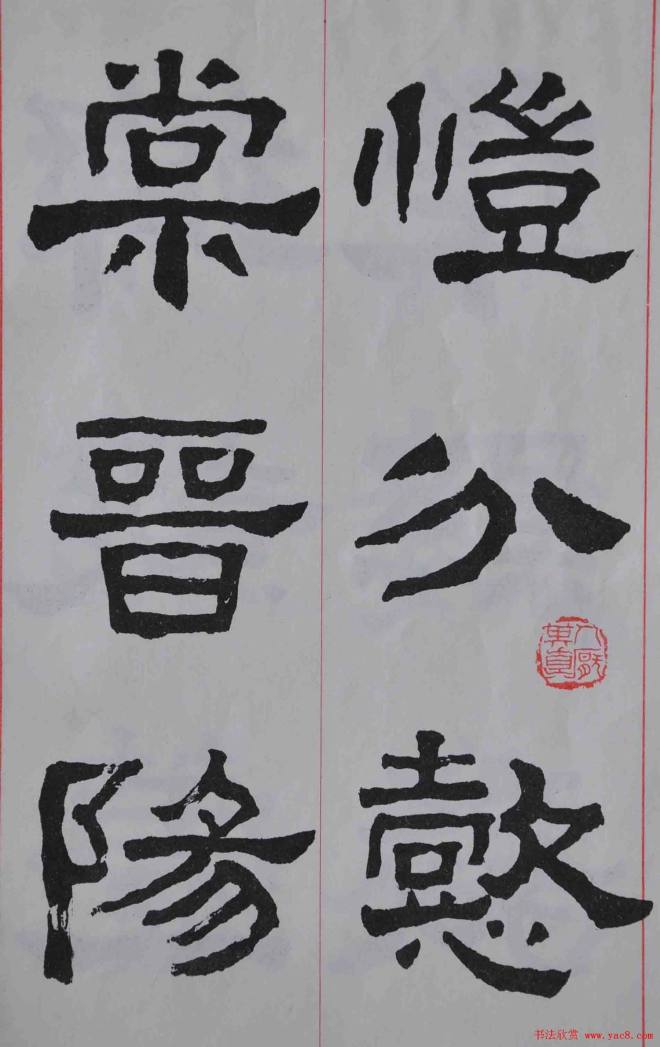 愷分懿
棠晋陽
书法欣赏 www.yac8.com